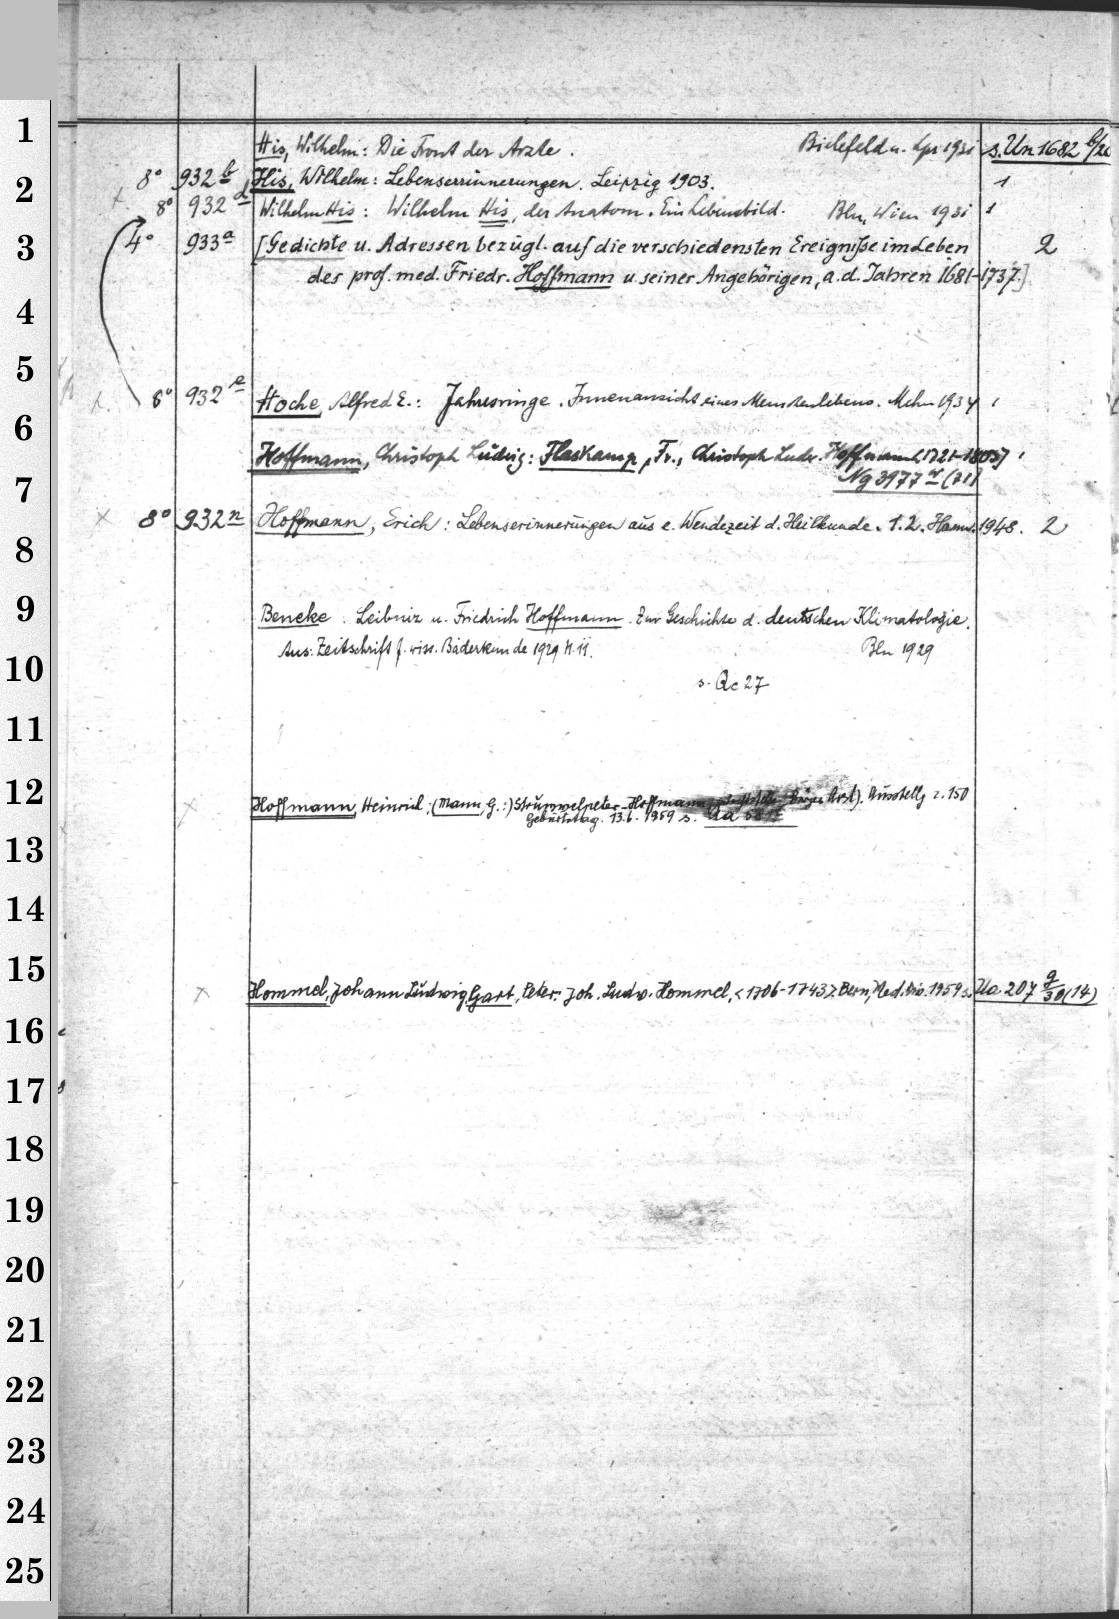 1 His, Wilhelm: Die Front der Ärzte. Bielefeld u. Lpz 1931 s. Un 1682 b/20
2 8° 932 b His, Wilhelm: Lebenserinnerungen. Leipzig 1903. 1
x 8° 932 d Wilhelm His: Wilhelm His, der Anatom. Ein Lebensbild. Bln, Wien 1931 1
3 4° 933 a [Gedichte u. Adressen bezügl. auf die verschiedensten Ereigniße im Leben 2
des prof. med. Friedr. Hoffmann u. seiner Angehörigen, a. d. Jahren 1681-1737.]
4
5
x. 8° 932 e Hoche, Alfred E.: Jahresringe. Innenansicht eines Menschenlebens. Mchn 1934 1
6
Hoffmann, Christoph Ludwig: Flaskamp, Fr., Christoph Ludw. Hoffmann <1721-1807> 1
7 Ng 3977 (21)
x 8° 932 n Hoffmann, Erich: Lebenserinnerungen aus e. Wendezeit d. Heilkunde. 1. 2. Hann. 1948. 2
8
9 Beneke. Leibniz u. Friedrich Hoffmann. Zur Geschichte d. deutschen Klimatologie.
Aus: Zeitschrift f. wiss. Bäderkunde 1929 H. 11. Bln 1929
10 s. Qc 27
11
12 x Hoffmann, Heinrich: (Mann, G.:) Struwwelpeter-Hoffmann Arzt). Ausstellg z. 150
Geburtstag. 13.6. 1959 s.
13
14
15
x Hommel, Johann Ludwig Gart, Peter: Joh. Ludw. Hommel, <1706-1743>. Bern, Med. Diss. 1959 s. Ua 207 g/30 (14)
16
17
18
19
20
21
22
23
24
25